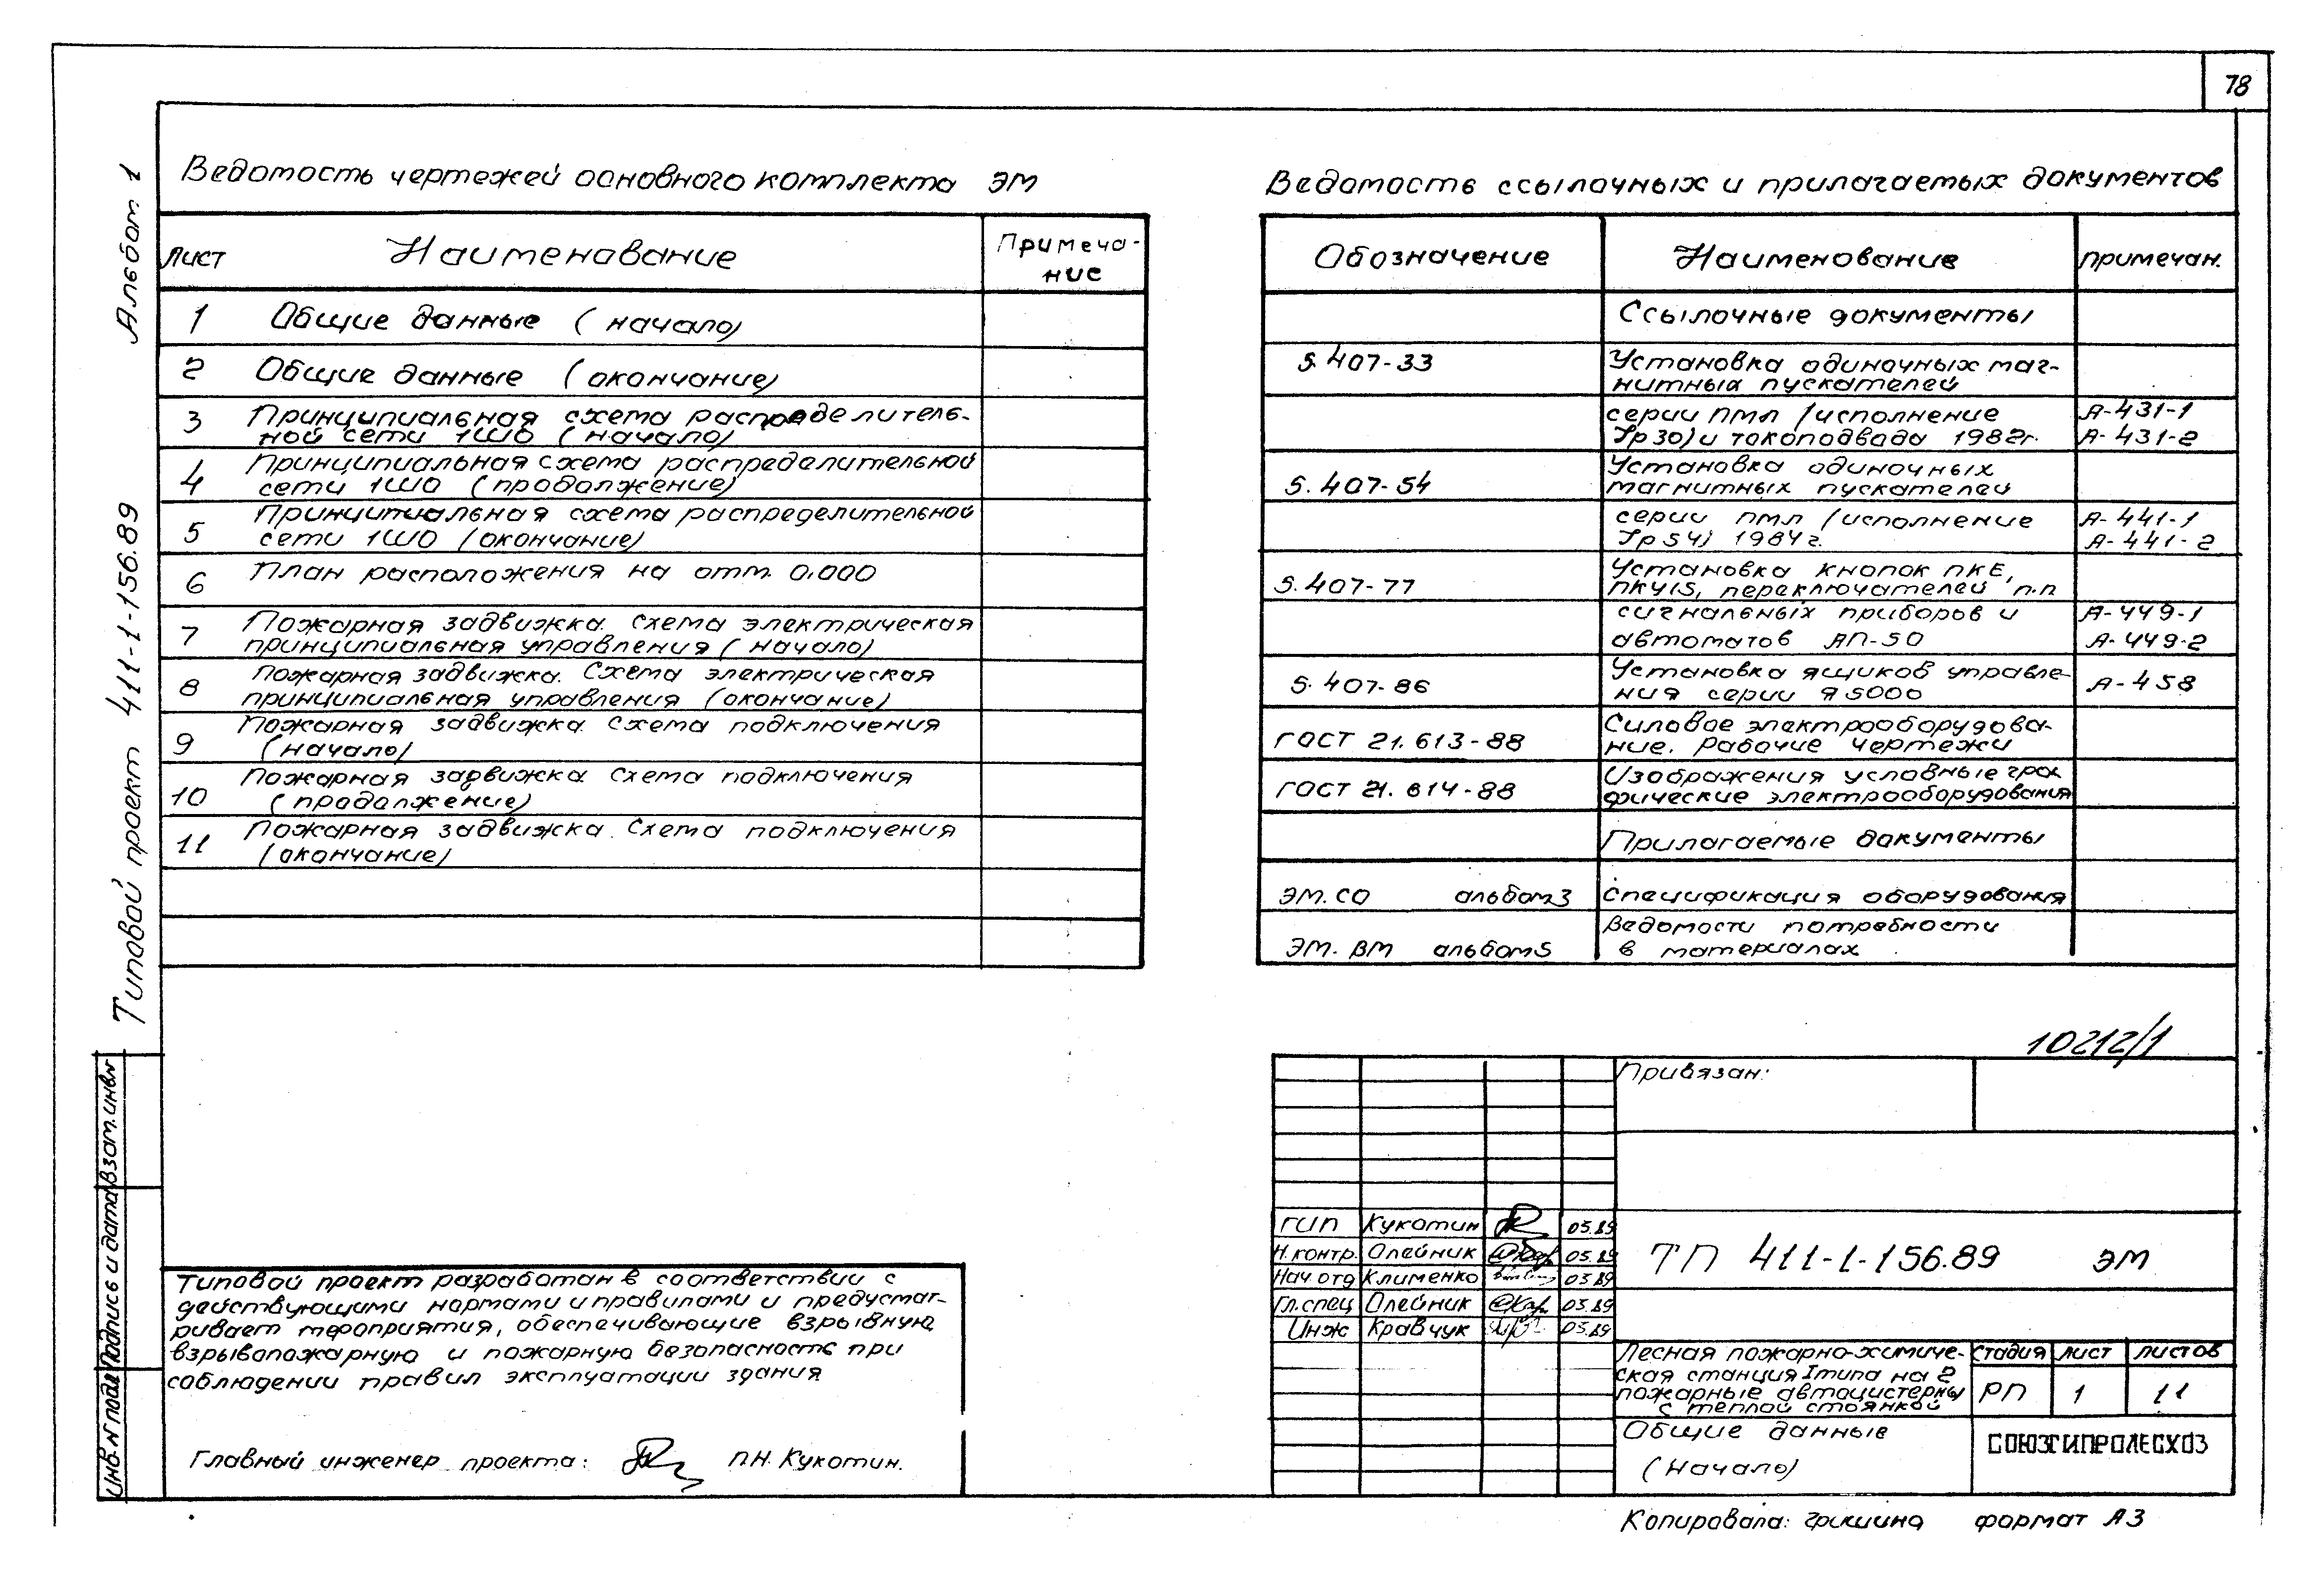 78
Альбом 1
Типовой проект 411-1-156.89
Взам. инв.№
Подпись и дата
Инв.№ подл.
Ведомость чертежей основного комплекта ЭМ
Лист Наименование Примеча-
ние
1 Общие данные (начало)
2 Общие данные (окончание)
3 Принципиальная схема распределитель-
ной сети 1ШО (начало)
4 Принципиальная схема распределительной
сети 1ШО (продолжение)
5 Принципиальная схема распределительной
сети 1ШО (окончание)
6 План расположения на отм. 0.000
7 Пожарная задвижка. Схема электрическая
принципиальная управления (начало)
8 Пожарная задвижка. Схема электрическая
принципиальная управления (окончание)
9 Пожарная задвижка. Схема подключения
(начало)
10 Пожарная задвижка. Схема подключения
(продолжение)
11 Пожарная задвижка. Схема подключения
(окончание)
Ведомость ссылочных и прилагаемых документов
Обозначение Наименование примечан.
Ссылочные документы
5.407-33 Установка одиночных маг-
нитных пускателей
серии ПМЛ (исполнение А-431-1
Jр30) и токоподвода 1982г. А-431-2
Установка одиночных
5.407-54 магнитных пускателей
серии ПМЛ (исполнение А-441-1
Jр54) 1984г. А-441-2
Установка кнопок ПКЕ,
5.407-77 ПКУ15, переключателей п.п
сигнальных приборов и А-449-1
автоматов АП-50 А-449-2
Установка ящиков управле-
5.407-86 ния серии Я5000 А-458
Силовое электрооборудова-
ГОСТ 21.613-88 ние. Рабочие чертежи
Изображения условные гра
ГОСТ 21.614-88 фические электрооборудования
Прилагаемые документы
ЭМ.СО альбом3 Спецификация оборудования
Ведомости потребности
ЭМ. ВМ альбом5 в материалах
10212/1
Привязан:
ГИП Кукотин 05.89
Н.контр. Олейник 05.89
Нач.отд Клименко 05.89
Гл.спец Олейник 05.89
Инж Кравчук 05.89
ТП 411-1-156.89 ЭМ
Лесная пожарно-химиче-
ская станция I типа на 2
пожарные автоцистерны
с теплой стоянкой
Стадия Лист Листов
РП 1 11
Общие данные
(Начало)
СОЮЗГИПРОЛЕСХОЗ
Типовой проект разработан в соответствии с
действующими нормами и правилами и предусмат-
ривает мероприятия, обеспечивающие взрывную,
взрывопожарную и пожарную безопасность при
соблюдении правил эксплуатации здания
Главный инженер проекта: П.Н. Кукотин.
Копировала: Гришина формат А3